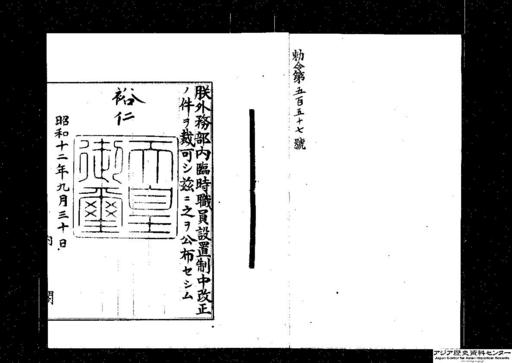 勅令第五百五十七號
朕外務部內臨時職員設置制中改正
ノ件ヲ裁可シ茲ニ之ヲ公布セシム
裕仁
天皇御璽
昭和十二年九月三十日
內閣
アジア歴史資料センター
Japan Center for Asian Historical Records